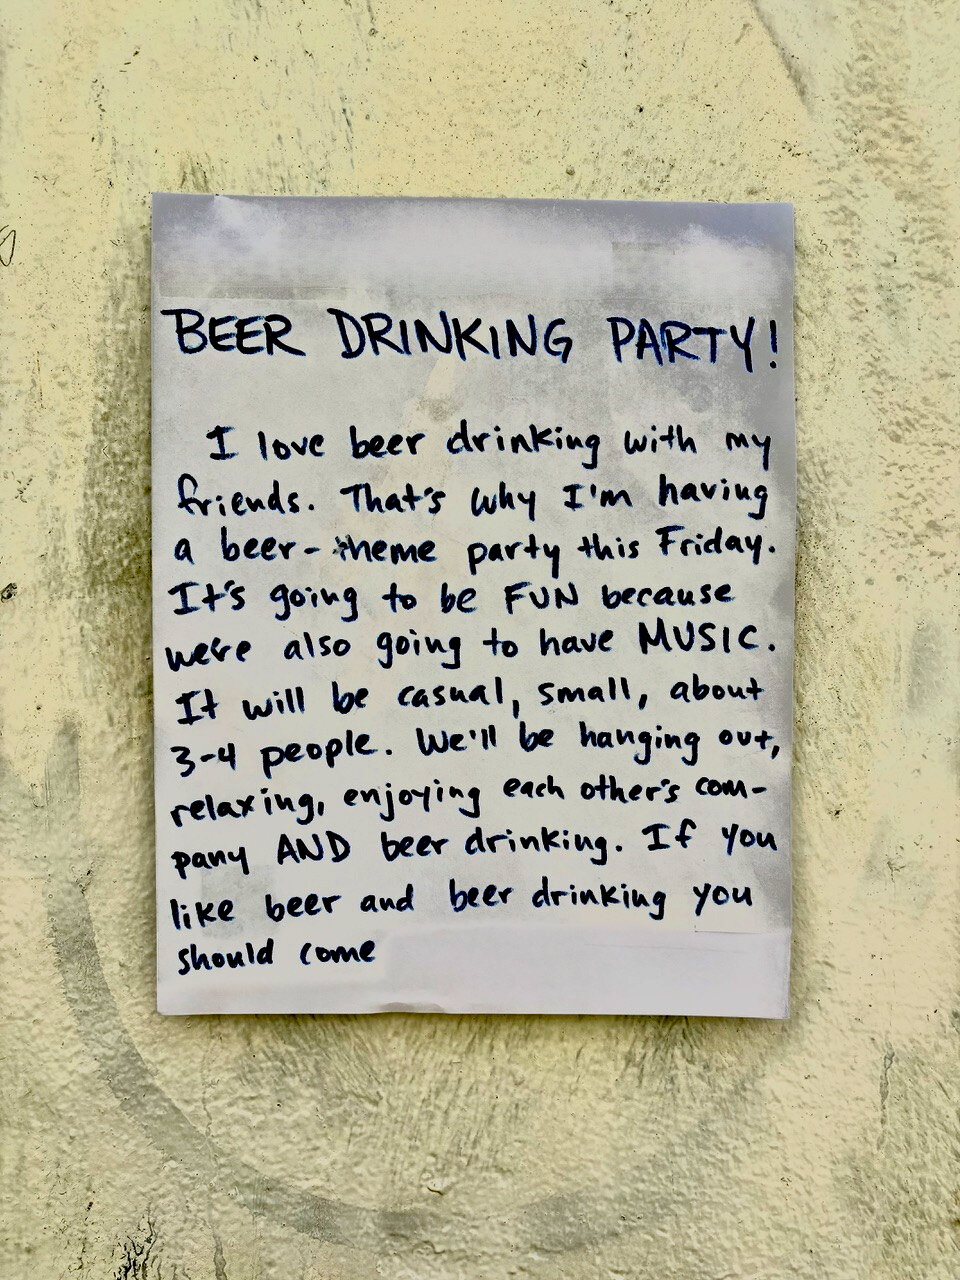 BEER DRINKING PARTY!
I love beer drinking with my
friends. That's why I'm having
a beer-theme party this Friday.
It's going to be FUN because
we're also going to have MUSIC.
It will be casual, small, about
3-4 people. We'll be hanging out,
relaxing, enjoying each other's com-
pany AND beer drinking. If you
like beer and beer drinking you
should come